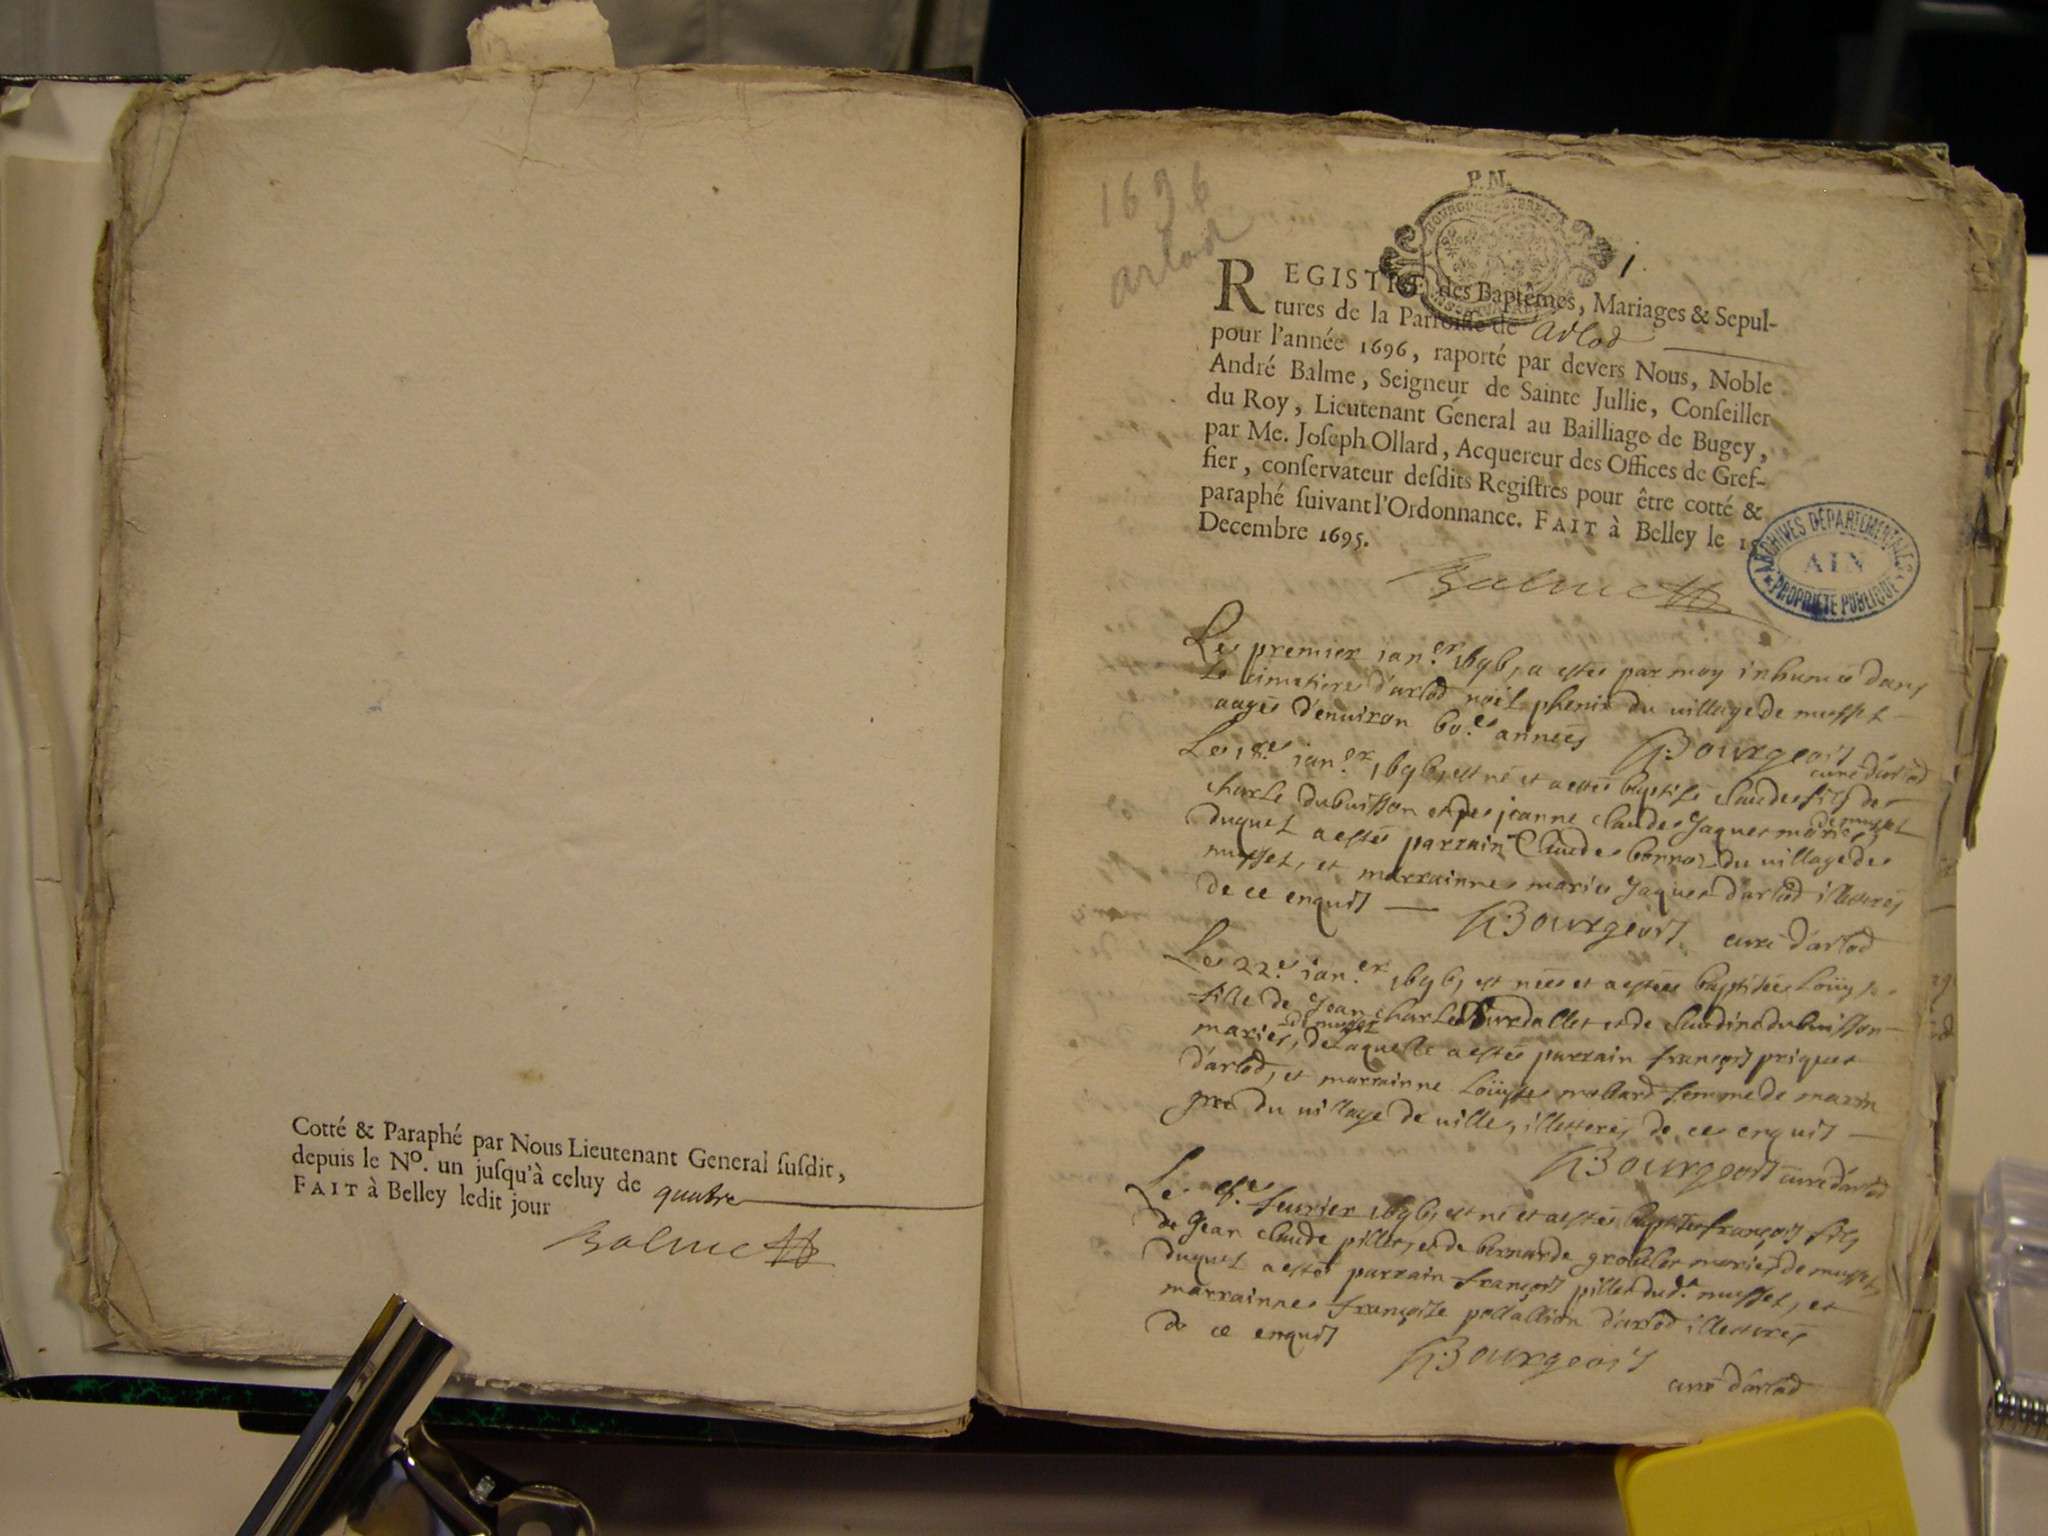 Cotté & Paraphé par Nous Lieutenant General ſuſdit,
depuis le No. un juſqu'à celuy de quatre
FAIT à Belley ledit jour
Balme
1696
arlod
P. M.
1.
REGISTRE des Baptêmes, Mariages & Sepul-
tures de la Parroiſſe de Arlod
pour l'année 1696, raporté par devers Nous, Noble
André Balme, Seigneur de Sainte Jullie, Conſeiller
du Roy, Lieutenant General au Bailliage de Bugey,
par Me. Joſeph Ollard, Acquereur des Offices de Gref-
fier, conſervateur deſdits Regiſtres pour être cotté &
paraphé ſuivant l'Ordonnance. FAIT à Belley le 15
Decembre 1695.
ARCHIVES DÉPARTEMENTALES
AIN
PROPRIÉTÉ PUBLIQUE
Balme
Le premier ian.er 1696, a esté par moy inhumé dans
le cimetiere d'arlod noël du village de musset
aagé d'environ 60.e années
Bourgeois
curé d'arlod
Le ian.er 1696, est né et a esté baptisé claude fils de
charle dubuisson et de jeanne claude Jaquet mariés
de musset
duquel a esté parrain Claude du village de
musset, et marrainne marie Jaquet d'arlod illetterés
de ce enquis — Bourgeois curé d'arlod
Le 22.e ian.er 1696, est née et a estée baptisée Loüyse
fille de Jean charle et de claudine dubuisson
de musset
mariés, de laquelle a esté parrain françois priquet
d'arlod, et marrainne Loüyse mollard femme de marin
du village de ville, illetterés de ce enquis —
Bourgeois curé d'arlod
Le fevrier 1696, est né et a esté baptisé françois fils
de Jean claude pillet, et de bernarde mariés de musset,
duquel a esté parrain françois pillet dud.t musset, et
marrainne françoise d'arlod illetterés
de ce enquis
Bourgeois
curé d'arlod